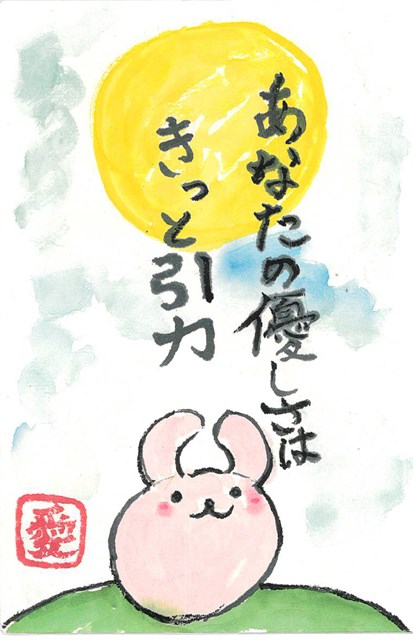 あなたの優しさは
きっと引力
愛